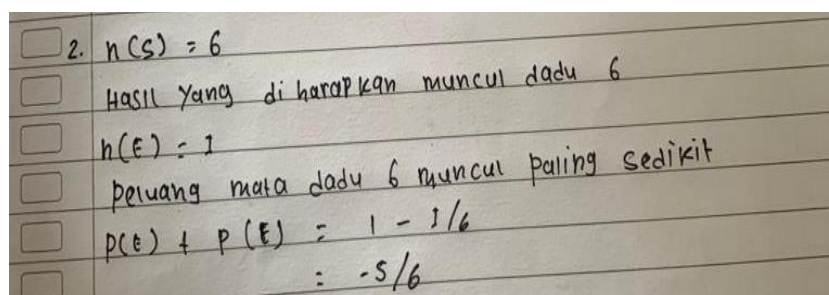 2. n(S) = 6
Hasil yang di harapkan muncul dadu 6
n(E) = 1
Peluang mata dadu 6 muncul paling sedikit
P(E) + P(E) = 1 - 1/6
= -5/6